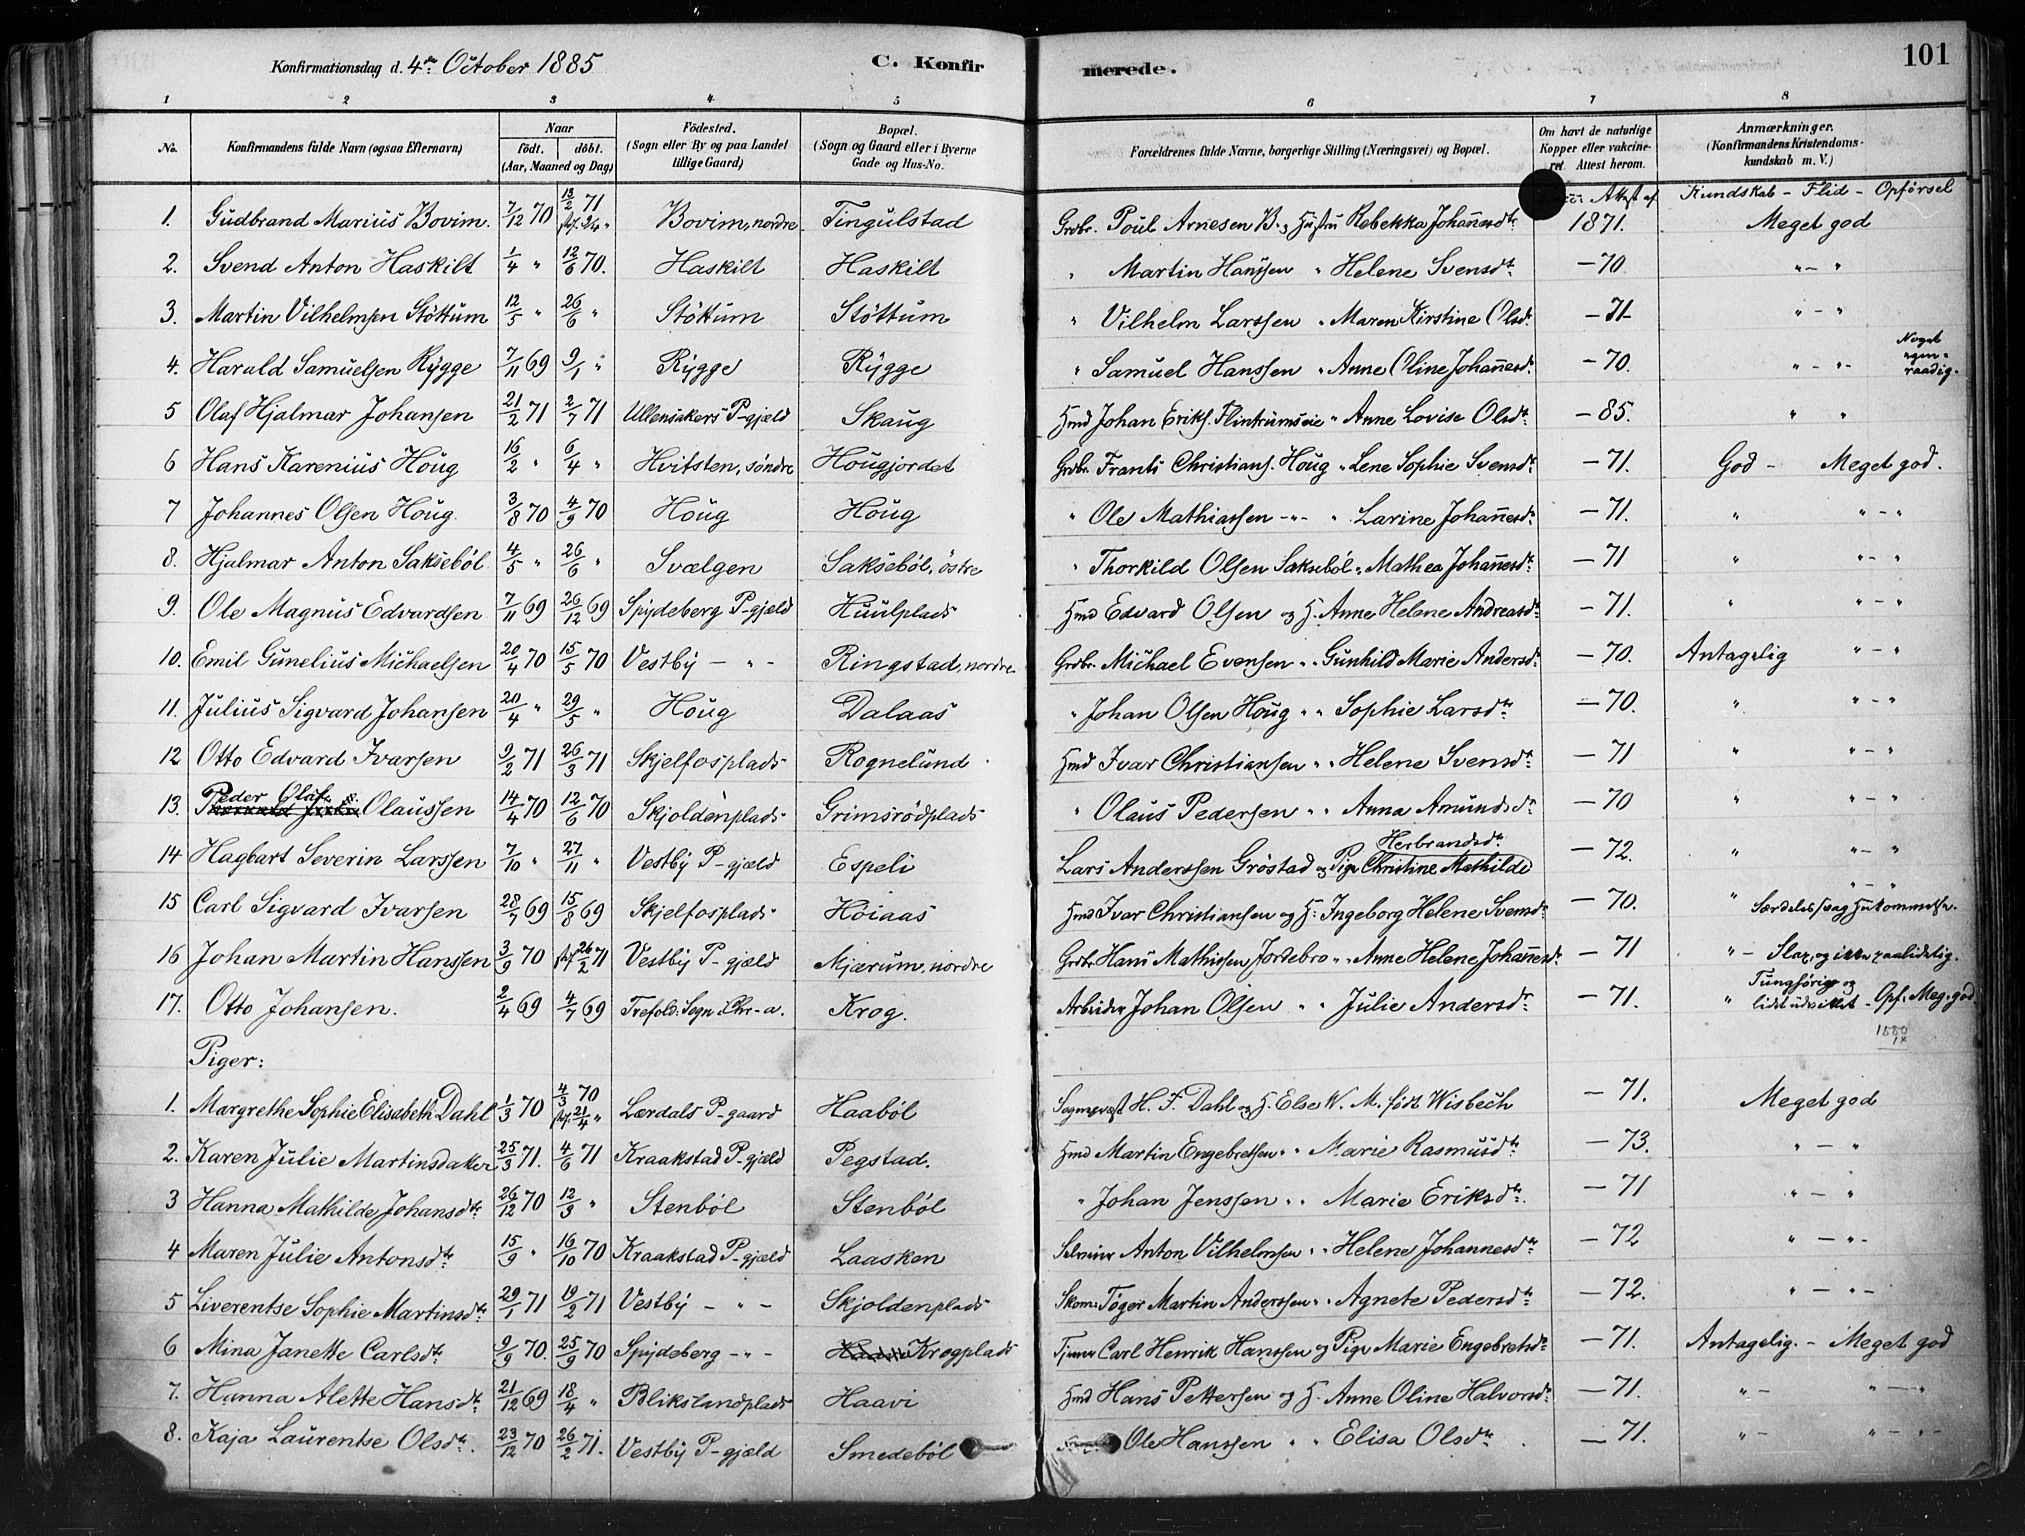 Konfirmationsdag d. 4de October 1885 C. Konfirmerede. 101
1 2 3 4 5 6 7 8
No. Konfirmandens fulde Navn (ogsaa Efternavn) Naar födt. döbt. (Aar, Maaned og Dag) Födested. (Sogn eller By og paa Landet tillige Gaard) Bopæl. (Sogn og Gaard eller i Byerne Gade og Hus-No. Forældrenes fulde Navne, borgerlige Stilling (Næringsvei) og Bopæl. Om havt de naturlige Kopper eller vakcineret. Attest herom. Anmærkninger. (Konfirmandens Kristendomskundskab m. V.)
Attest af Kundskab - Flid - Opförsel
1. Gudbrand Marius Bovim. 7/12 70 13/2 71 Bovim, nordre Tingulstad Grdbr. Poul Arnesen B. og Hustru Rebekka Johannesdtr 1871. Meget god
2. Svend Anton Haskilt 1/4 " 12/6 70. Haskilt Haskilt " Martin Hanssen " Helene Svensdtr - 70 " - "
3. Martin Vilhelmsen Stöttum 12/5 " 26/6 " Stöttum Stöttum " Vilhelm Larssen " Maren Kirstine Olsdr. - 71- " - "
4. Harald Samuelsen Rygge 7/11 69 9/1 " Rygge Rygge " Samuel Hanssen " Anne Oline Johannesdtr - 70. " - " - Noget egen-raadig.
5 Olaf Hjalmar Johansen 21/2 71 2/7 71 Ullensakers P-gjæld Skaug Hmd Johan Eriks. Flintrumseie " Anne Lovise Olsdtr - 85. " "
6 Hans Karenius Houg 16/2 " 6/4 " Hvitsten, søndre Hougjordet Grdbr. Frants Christians. Houg " Lene Sophie Svensdtr - 71. God - Meget god.
7 Johannes Olsen Houg 3/8 70 4/9 70 Houg Houg " Ole Mathiassen -"- " Larine Johannesdtr - 71. " " - "
8. Hjalmar Anton Saksebøl 4/5 " 26/6 " Svælgen Saksebøl, östre " Thorkild Olsen Saksebøl " Mathea Johannesdtr - 71 " " - "
9. Ole Magnus Edvardsen 7/11 69 26/12 69 Spydeberg P-gjæld Huulplads Hmd Edvard Olsen og H. Anne Helene Andreasdtr - 71. " " - "
10. Emil Gunelius Michaelsen 20/4 70 15/5 70 Vestby - " - Ringstad, nordre Grdbr. Michael Evensen " " Gunhild Marie Andersdtr - 70. Antagelig " - "
11. Julius Sigvard Johansen 20/4 " 29/5 " Houg Dalaas " Johan Olsen Houg " " Sophie Larsdtr - 70. " " - "
12 Otto Edvard Ivarsen 9/2 71 26/3 71 Skjelfosplads Rognelund Hmd Ivar Christiansen " " Helene Svensdtr - 71 " " - "
13. Peder Olaf Olaussen 14/4 70 12/6 70 Skjoldenplads Grimsrödplads " Olaus Pedersen " " Anna Amundsdtr - 70 " " - "
14 Hagbart Severin Larssen 7/10 " 27/11 " Vestby P-gjæld Espeli Lars Anderssen Gröstad og Pige Christine Mathilde Herbrandsdtr - 72. " " - "
15 Carl Sigvard Ivarsen 28/7 69 15/8 69 Skjelfosplads Höiaas Hmd Ivar Christiansen og H. Ingeborg Helene Svensdtr - 70. " " - " Særdeles svag Hukommelse.
16 Johan Martin Hanssen 3/9 70 26/2 71 Vestby P-gjæld Mjærum, nordre Grdbr. Hans Mathissen Jordebro " " Anne Helene Johannesdtr - 71 " - Sløv, og ikke paalidelig.
17. Otto Johansen. 2/4 69 4/7 69 Trefold. Sogn i Chr-a. Krog. Arbeider Johan Olsen " " Julie Andersdtr - 71. " Tunghörig og lidt udviklet - Opf. Meg. god
Piger:
1. Margrethe Sophie Elisabeth Dahl 1/3 70 4/3 70 21/4 " Lærdals P-gaard Haabøl Sognepræst H. F. Dahl og H. Else W. M. født Wisbech - 71. Meget god
2. Karen Julie Martinsdatter 25/3 71. 4/6 71 Kraakstad P-gjæld Pegstad. Hmd Martin Engebretsen " " Marie Rasmusdtr - 73. " - "
3 Hanna Mathilde Johansdtr 26/12 70 12/3 " Stenbøl Stenbøl " Johan Jenssen " " Marie Eriksdtr. - 71 " - "
4 Maren Julie Antonsdtr 15/9 " 16/10 70 Kraakstad P-gjæld Laasken Selveier Anton Vilhelmsen " " Helene Johannesdtr - 72 " - " -
5 Liverentse Sophie Martinsdtr 29/1 71 19/2 71 Vestby - " - Skjoldenplads Skom. Töger Martin Anderssen " " Agnete Pedersdtr - 72. " - " -
6 Mina Janette Carlsdtr 9/9 70. 25/9 70 Spydeberg - " - Krogplads Tjener Carl Henrik Hanssen og Pige Marie Engebretsdtr - 71. Antagelig. - Meget god
7. Hanna Alette Hansdtr 21/12 69 18/4 " Blikslandplads Haavi Hmd Hans Pettersen og H. Anne Oline Halvorsdtr - 71. " - " - "
8. Kaja Laurentse Olsdtr. 23/12 70 26/2 71. Vestby P-gjæld Smedebøl Ole Hanssen " " Elisa Olsdtr - 71. " - " - "